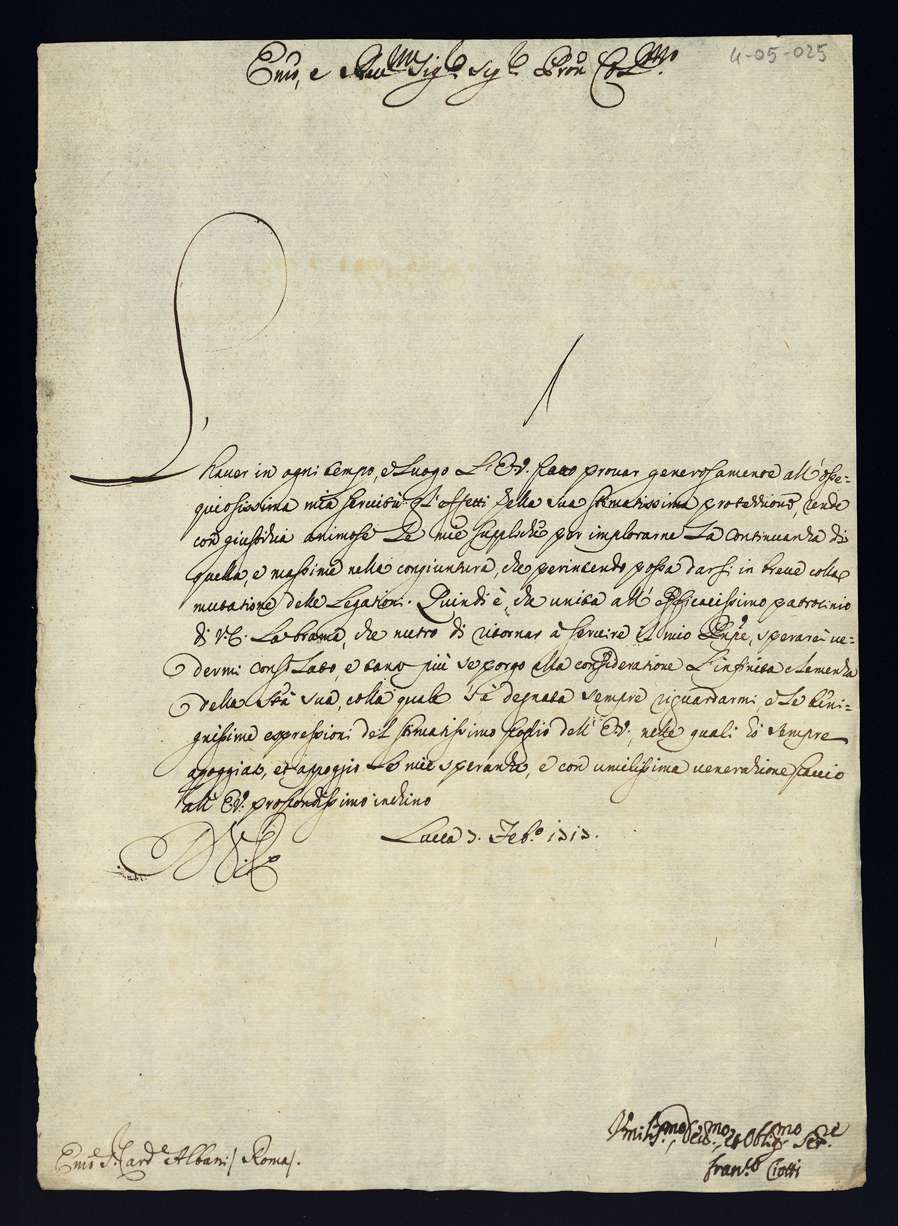 4-05-025
Em̃o, e Reu.mo Sig.r Sig.r Pron Col.mo
L'hauer in ogni tempo, e Luogo L'E.V. fatto prouar generosamente all'osse=
quiosissima mia seruitù gl'effetti della sua stimatissima protettione, rende
con giustitia animose Le mie suppliche per implorarne La continuanza di
quella, e massime nella congiuntura, che perintendo possa darsi in breue colla
mutatione delle Legationi. Quindi è, che unita all'efficacissimo patrocinio
di V.E. La brama, che nutro di ritornar à seruire il mio Pñpe, sperarei ue=
dermi consolato, e tanto più se porgo alla consideratione L'infinita clemenza
della Stà sua, colla quale s'è degnata sempre riguardarmi, e Le beni=
gnissime espressioni del stimatissimo foglio dell'E.V., nelle quali hò sempre
appoggiate, et appoggio Le mie speranze, e con umilissima ueneratione faccio
all'E.V. profondissimo inchino
Lucca 3. Feb.o 1713.
D V.E.
Umiliss.mo, Deu.mo, et Oblig.mo Ser.e
Fran.co Ciotti
Em̃o S. Card.e Albani / Roma /.